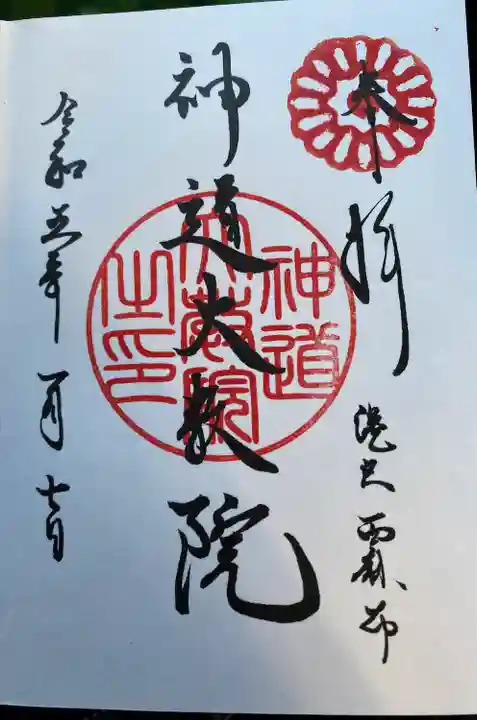 奉拝
港区 西麻布
神道大教院
神道
大教院
之印
令和五年 一月 七日